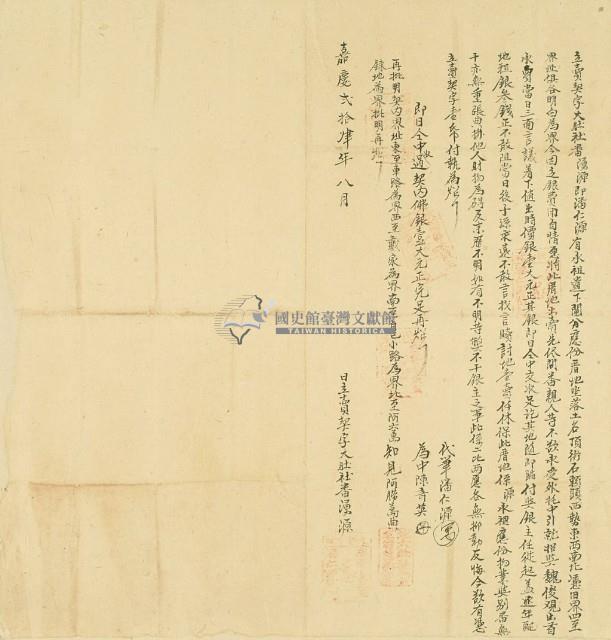 立賣契字大肚社番湧源即潘仁源有承祖遺下鬮分應份厝地坐落土名頂街石賴頭西勢東西南北憑旧界四至
界址俱各明白為界今因乏銀費用自情愿將此厝地出賣先依問番親人等不欲承受外托中引就招與魏俊观出首
承買當日三面言議着下值出時價銀壹大元正其銀即日仝中交收足訖其地隨即踏付與銀主任從起盖逐年配
地租銀叁錢正不敢阻當日後子孫永遠不敢言找言贖討地壹賣仟休保此厝地係源承祖應份物業與別番無
干亦無重張典掛他人財物為碍及來歷不明如有不明等弊不干銀主之事此係二比两愿各無抑勒反悔今欲有憑
立賣契字壹帋付執為炤
即日仝中收過契內佛銀壹大元正完足再炤
再批明契內界址東至車路為界西至戴家為界南至小路為界北至阿
錄地為界批明再炤
代筆潘仁源
為中陳奇英
知見阿
嘉慶弍拾肆年八月
日立賣契字大肚社番湧源
國史館臺灣文獻館
TAIWAN HISTORICA